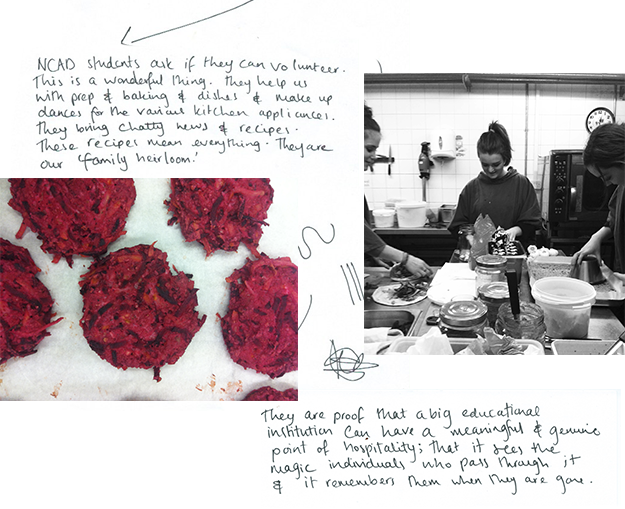 NCAD students ask if they can volunteer.
This is a wonderful thing. They help us
with prep & baking & dishes & make up
dances for the various kitchen appliances.
They bring chatty news & recipes.
These recipes mean everything. They are
our 'family heirloom.'
They are proof that a big educational
institution can have a meaningful & genuine
point of hospitality; that it sees the
magic individuals who pass through it
& it remembers them when they are gone.